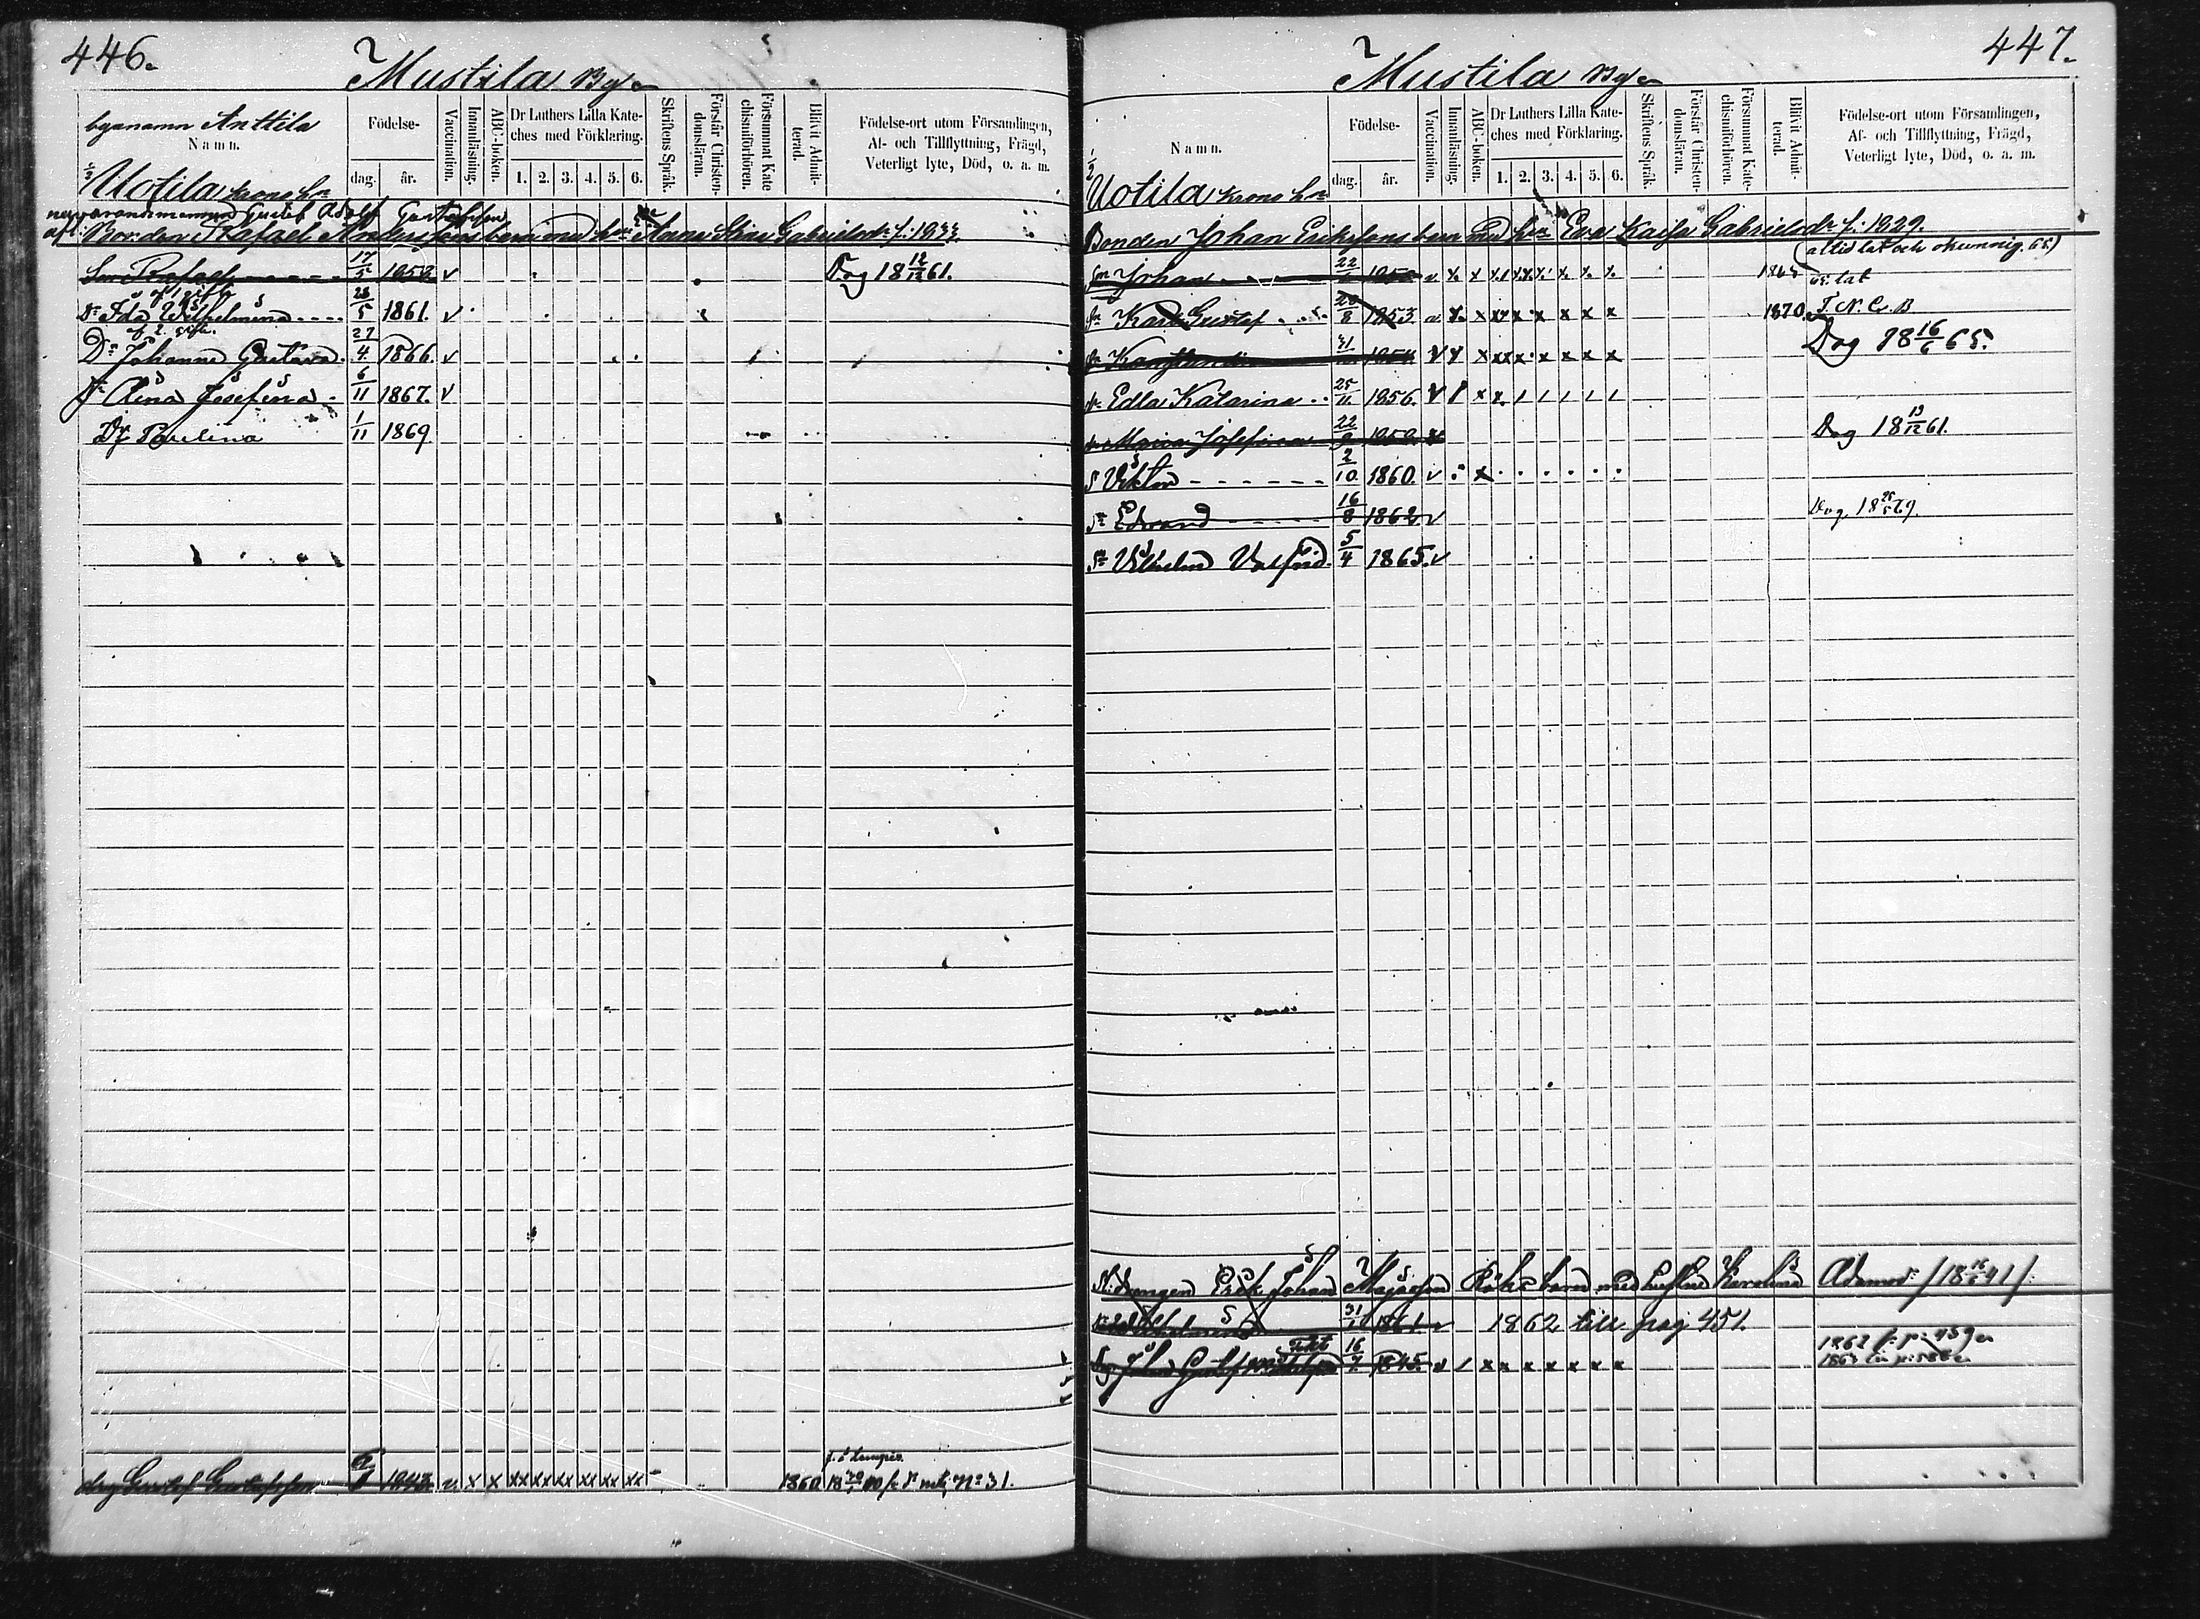 446.
Mustila By
byanamn Anttila
Namn.
Födelse-
dag.
år.
Vaccination.
Innanläsning.
ABC-boken.
Dr Luthers Lilla Kate-
ches med Förklaring.
1. 2. 3. 4. 5. 6.
Skriftens Språk.
Förstår Christen-
domsläran.
Försummat Kate
chismiförhören.
Blifvit Admit-
terad.
Födelse-ort utom Församlingen,
Af- och Tillflyttning, Frägd,
Veterligt lyte, Död, o. a. m.
1/2 Uotila Krono
Gustaf Adolf Gustafsson
Bonden Rafael Anderssons barn med hu Anna Stina Gabrielsdr f: 1833.
Son Rafael 17/5 1858 v Dog 18 12/12 61.
af 1 gifte
Dr Ida Wilhelmina 28/5 1861. v
af 2. gifte.
Dr Johanna Gustava. 27/4 1866. v
Dr Aina Josefina 6/11 1867. v
Dr Paulina 1/11 1869
drg Gustaf Gustafsson 1843 v x x xx xx xx xx xx xx 1860
447.
Mustila By
Namn.
Födelse-
dag.
år.
Vaccination.
Innanläsning.
ABC-boken.
Dr Luthers Lilla Kate-
ches med Förklaring.
1. 2. 3. 4. 5. 6.
Skriftens Språk.
Förstår Christen-
domsläran.
Försummat Kate-
chismiförhören.
Blifvit Admit-
terad.
Födelse-ort utom Församlingen,
Af- och Tillflyttning, Frägd,
Veterligt lyte, Död, o. a. m.
1/2 Uotila Krono
Bonden Johan Erikssons barn med hu Eva Kaisa Gabrielsdr f: 1829.
(altid lat och okunnig. 65)
Sn Johan 22
är lat
Sn Karl Gustaf 20/8 1853. 1870. T. N. C. B
Sn Konstantin 31 1854 Dog 18 16/6 65.
Dr Edla Katarina 25/11 1856.
Dr Maria Josefina 22/9 1858. Dog 18 13/12 61.
S Viktor 2/10 1860. v
Sn Edvard 16/8 1862 v Dog. 18 69.
Sn Vilhelm Valfrid. 5/4 1865. v
Drängen Erik Johan Majasson barn med hustru Karolina Adamsdr /18 16/6 41/:
Wilhelmina 31/1 1861. v 1862 till pag 451.
Drg Johan Gustaf 16/7 1845. v / x x x x x x x 1862 fr p: 459